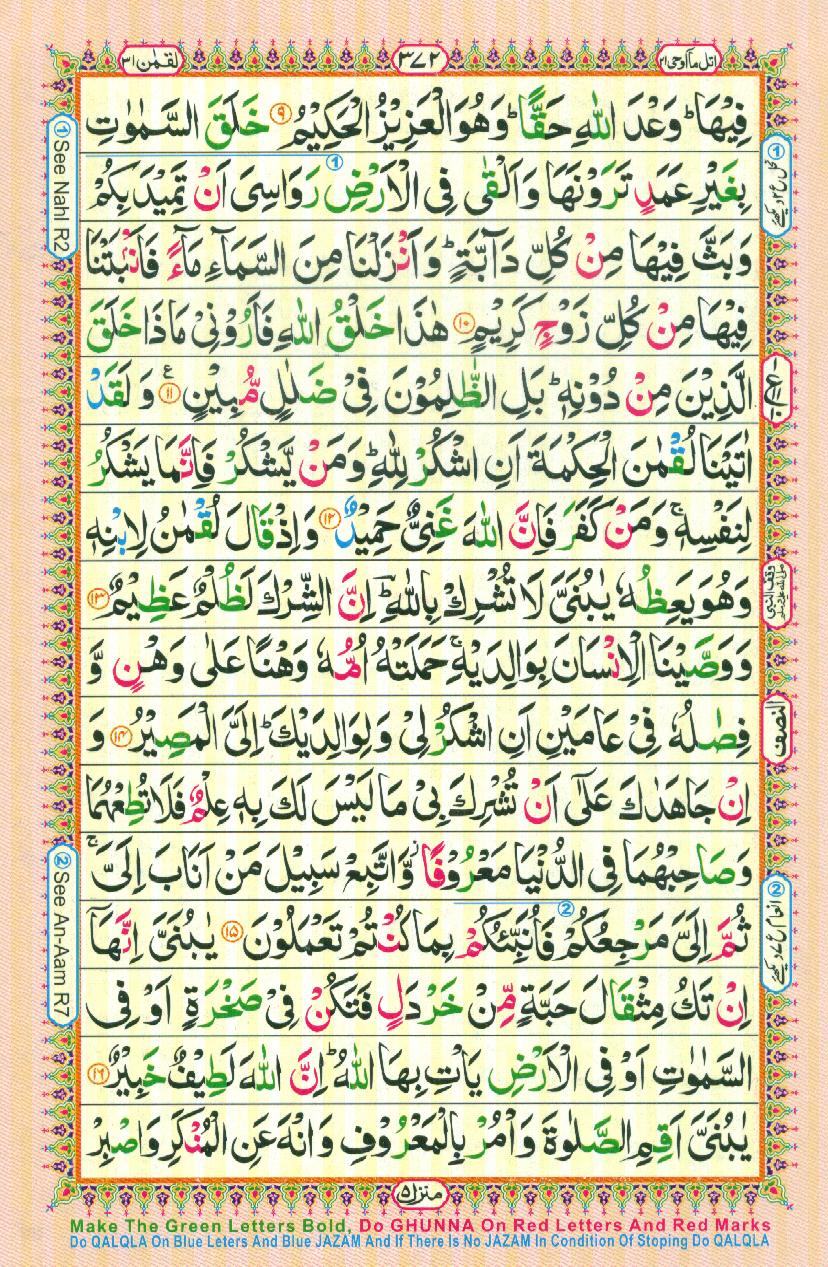 اتل مآاوحی ۲۱
۳۷۲
لقمٰن ۳۱
فِيْهَا ؕ وَعْدَ اللّٰهِ حَقًّا ؕ وَهُوَ الْعَزِيْزُ الْحَكِيْمُ ۹ خَلَقَ السَّمٰوٰتِ
بِغَيْرِ عَمَدٍ تَرَوْنَهَا وَاَلْقٰى فِى الْاَرْضِ رَوَاسِىَ اَنْ تَمِيْدَ بِكُمْ
وَبَثَّ فِيْهَا مِنْ كُلِّ دَآبَّةٍ ؕ وَاَنْزَلْنَا مِنَ السَّمَآءِ مَآءً فَاَنْۢبَتْنَا
فِيْهَا مِنْ كُلِّ زَوْجٍ كَرِيْمٍ ۱۰ هٰذَا خَلْقُ اللّٰهِ فَاَرُوْنِىْ مَاذَا خَلَقَ
الَّذِيْنَ مِنْ دُوْنِهٖ ؕ بَلِ الظّٰلِمُوْنَ فِىْ ضَلٰلٍ مُّبِيْنٍ ۱۱ ع وَ لَقَدْ
اٰتَيْنَا لُقْمٰنَ الْحِكْمَةَ اَنِ اشْكُرْ لِلّٰهِ ؕ وَمَنْ يَّشْكُرْ فَاِنَّمَا يَشْكُرُ
لِنَفْسِهٖ ۚ وَمَنْ كَفَرَ فَاِنَّ اللّٰهَ غَنِىٌّ حَمِيْدٌ ۱۲ وَاِذْ قَالَ لُقْمٰنُ لِابْنِهٖ
وَهُوَ يَعِظُهٗ يٰبُنَىَّ لَا تُشْرِكْ بِاللّٰهِ ؕؔ اِنَّ الشِّرْكَ لَظُلْمٌ عَظِيْمٌ ۱۳
وَوَصَّيْنَا الْاِنْسَانَ بِوَالِدَيْهِ ۚ حَمَلَتْهُ اُمُّهٗ وَهْنًا عَلٰى وَهْنٍ وَّ
فِصٰلُهٗ فِىْ عَامَيْنِ اَنِ اشْكُرْ لِىْ وَلِوَالِدَيْكَ ؕ اِلَىَّ الْمَصِيْرُ ۱۴ وَ
اِنْ جَاهَدٰكَ عَلٰٓى اَنْ تُشْرِكَ بِىْ مَا لَيْسَ لَكَ بِهٖ عِلْمٌ فَلَا تُطِعْهُمَا
وَصَاحِبْهُمَا فِى الدُّنْيَا مَعْرُوْفًا ؗ وَّاتَّبِعْ سَبِيْلَ مَنْ اَنَابَ اِلَىَّ ۚ
ثُمَّ اِلَىَّ مَرْجِعُكُمْ فَاُنَبِّئُكُمْ بِمَا كُنْتُمْ تَعْمَلُوْنَ ۱۵ يٰبُنَىَّ اِنَّهَآ
اِنْ تَكُ مِثْقَالَ حَبَّةٍ مِّنْ خَرْدَلٍ فَتَكُنْ فِىْ صَخْرَةٍ اَوْ فِى
السَّمٰوٰتِ اَوْ فِى الْاَرْضِ يَاْتِ بِهَا اللّٰهُ ؕ اِنَّ اللّٰهَ لَطِيْفٌ خَبِيْرٌ ۱۶
يٰبُنَىَّ اَقِمِ الصَّلٰوةَ وَاْمُرْ بِالْمَعْرُوْفِ وَانْهَ عَنِ الْمُنْكَرِ وَاصْبِرْ
النصف
① See Nahl R2
② See An-Aam R7
منزل ۵
Make The Green Letters Bold, Do GHUNNA On Red Letters And Red Marks
Do QALQLA On Blue Leters And Blue JAZAM And If There Is No JAZAM In Condition Of Stoping Do QALQLA